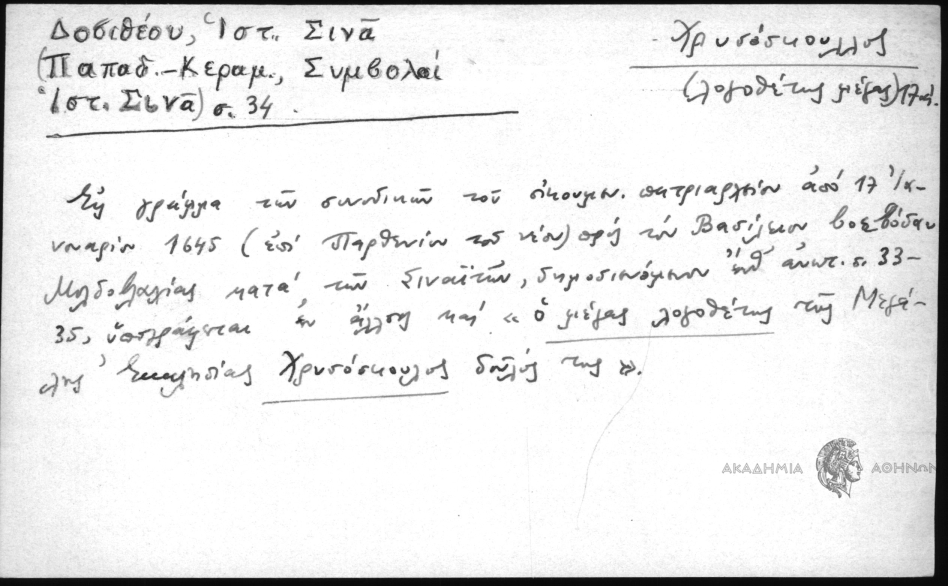 Δοσιθέου, Ἱστ. Σινᾶ
(Παπαδ.-Κεραμ., Συμβολαί
Ἱστ. Σινᾶ) σ. 34.
Χρυσόσκουλλος
(λογοθέτης μέγας) 17 αἰ.
Εἰς γράμμα τῶν συνοδικῶν τοῦ οἰκουμεν. πατριαρχείου ἀπό 17 Ἰα-
νουαρίου 1645 (ἐπί Παρθενίου τοῦ νέου) πρός τόν Βασίλειον βοεβόδαν
Μολδοβλαχίας κατά τῶν Σιναϊτῶν, δημοσιευόμενον ἀνωτ. σ. 33-
35, ὑπογράφεται ἐν ἄλλοις καί « ὁ μέγας λογοθέτης τῆς Μεγά-
λης Ἐκκλησίας Χρυσόσκουλος δοῦλός της ».
ΑΚΑΔΗΜΙΑ ΑΘΗΝΩΝ